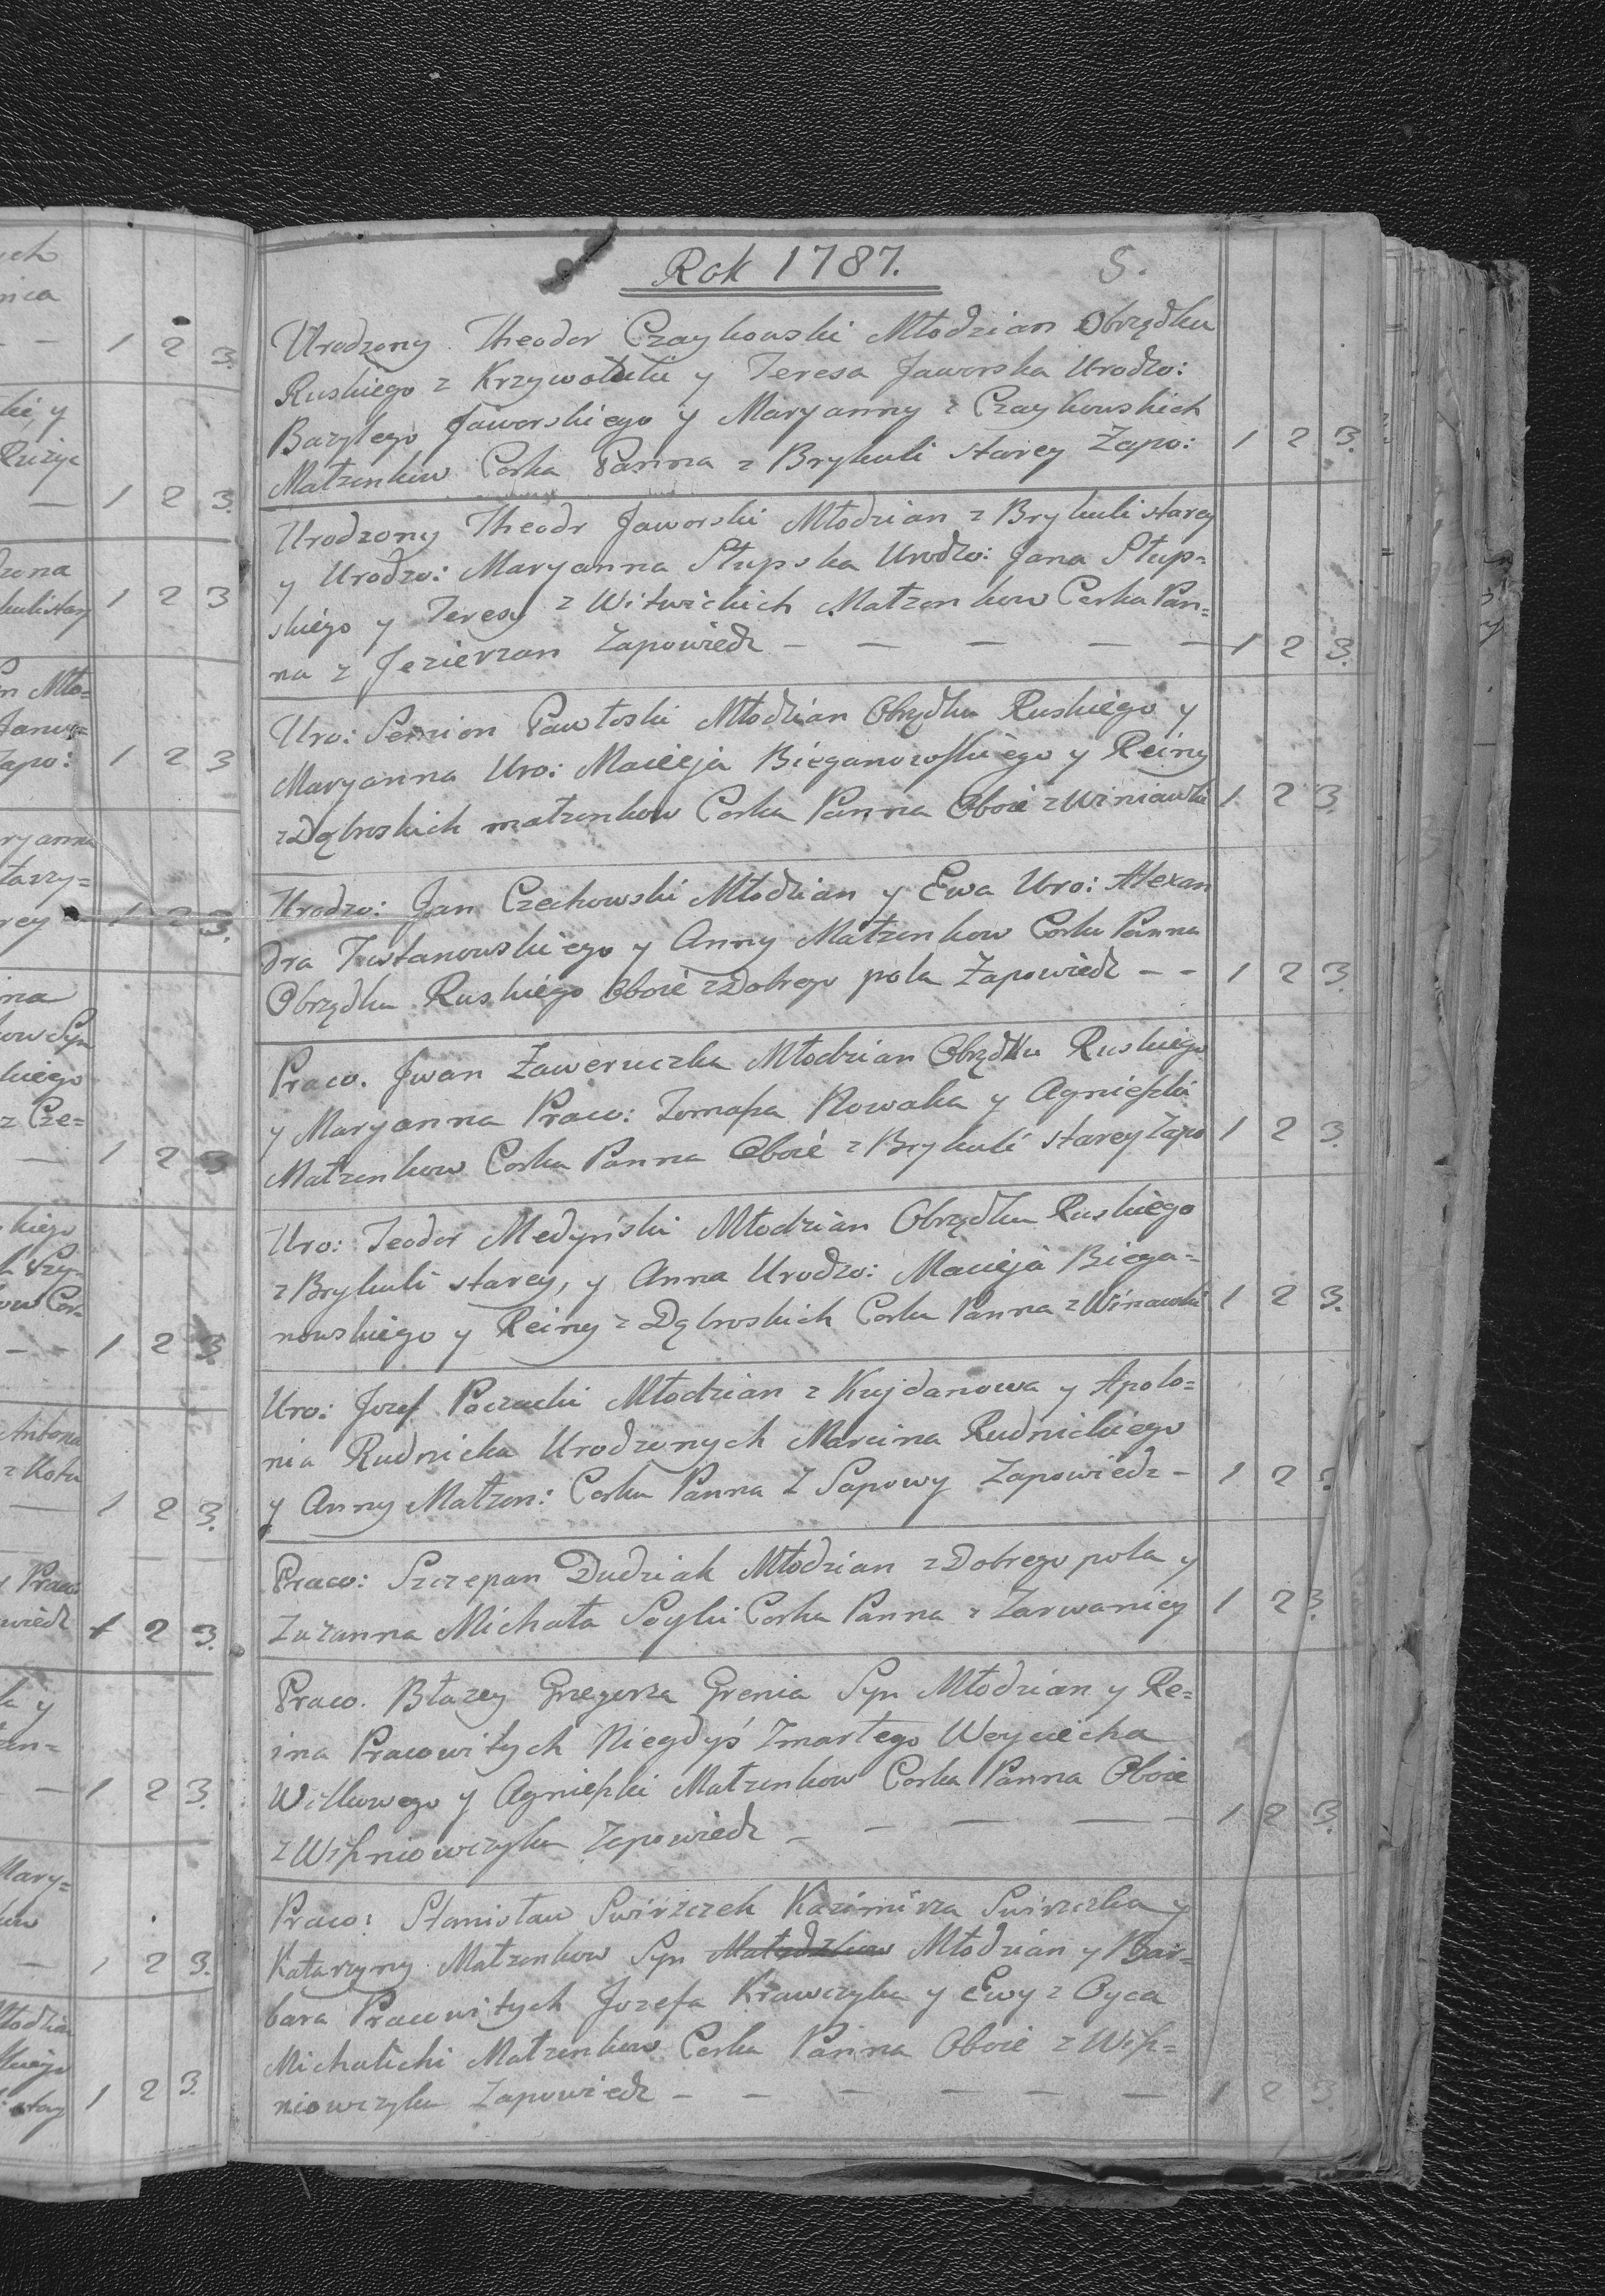 Rok 1787. 5.
Urodzony Theodor Czaykowski Młodzian Obrządku
Ruskiego z Krzywotuli y Teresa Jaworska Urodzo:
Bazylego Jaworskiego y Maryanny z Czaykowskich
Małzenkow Corka Panna z Brykuli starey Zapo: 1 2 3.
Urodzony Theodr Jaworski Młodzian z Brykuli starey
y Urodzo: Maryanna Słupska Urodzo: Jana Słup=
skiego y Teresy z Witwickich Małzenkow Corka Pan=
na z Jezierzan Zapowiedz — — — — — 1 2 3.
Uro: Semion Pawłoski Młodzian Obrządku Ruskiego y
Maryanna Uro: Macieja Bieganowskiego y Reiny
z Dąbroskich małzenkow Corka Panna Oboie z Winiawki 1. 2 3.
Urodzo: Jan Czechowski Młodzian y Ewa Uro: Alexan
dra Tustanowskiego y Anny Małzenkow Corka Panna
Obrządku Ruskiego Oboie z Dobrego pola Zapowiedz — — 1 2 3.
Praco. Jwan Zaweruczka Młodzian Obrządku Ruskiego
y Maryanna Praco: Tomaſza Nowaka y Agnieſzki
Małzenkow Corka Panna Oboie z Brykuli starey Zapo 1 2 3.
Uro: Teodor Medyński Młodzian Obrządku Ruskiego
z Brykuli starey, y Anna Urodzo: Macieja Biega=
nowskiego y Reiny z Dąbroskich Corka Panna z Winawki 1 2 3.
Uro: Jozef Poczacki Młodzian z Kujdanowa y Apolo=
nia Rudnicka Urodzonych Marcina Rudnickiego
y Anny Małzen: Corka Panna Z Sapowy Zapowiedz — 1 2 3
Praco: Szczepan Dudziak Młodzian z Dobrego pola y
Zuzanna Michała Soyki Corka Panna z Zarwanicy 1 2 3.
Praco. Błazey Grzegorza Grenia Syn Młodzian y Re=
ina Pracowitych Niegdyś Zmarłego Woyciecha
Wilkowego y Agnieſzki Małzenkow Corka Panna Oboie
z Wiſzniowczyka Zapowiedz — — — — 1 2 3.
Praco: Stanisław Swirzczek Kazimirza Swirzczka y
Katarzyny Małzenkow Syn Młodzian y Bar=
bara Pracowitych Jozefa Krawczyka y Ewy z Oyca
Michalichi Małzenkow Corka Panna Oboie z Wiſz=
niowczyka Zapowiedz — — — — — — 1 2 3.